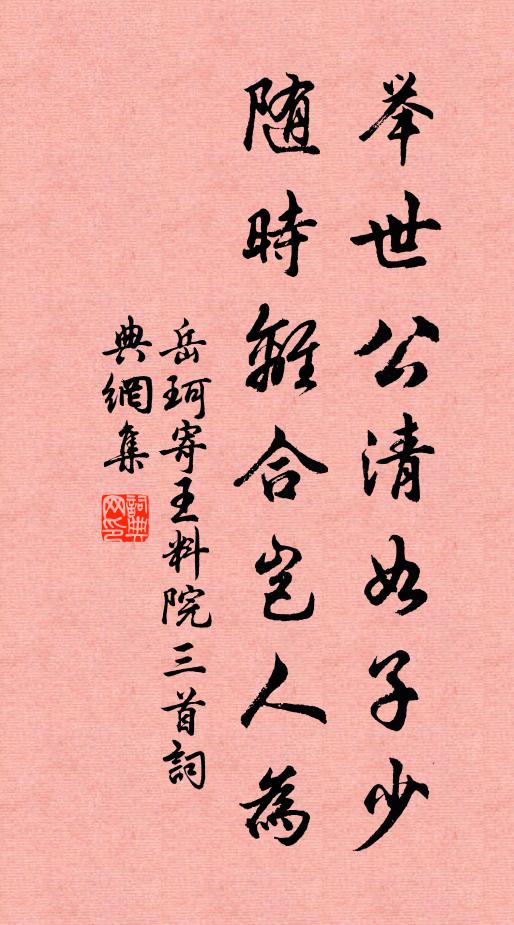 举世公清如子少
随時離合岂人為
岳珂寄王料院三首詞
典網集
詞典网印